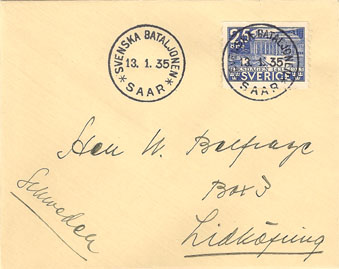 SVENSKA BATALJONEN
13. 1. 35
* SAAR *
25
SVENSKA BATALJONEN
13. 1. 35
SVERIGE
SAAR
Herr W. Belfrage
Box 3
Lidköping
Schweden